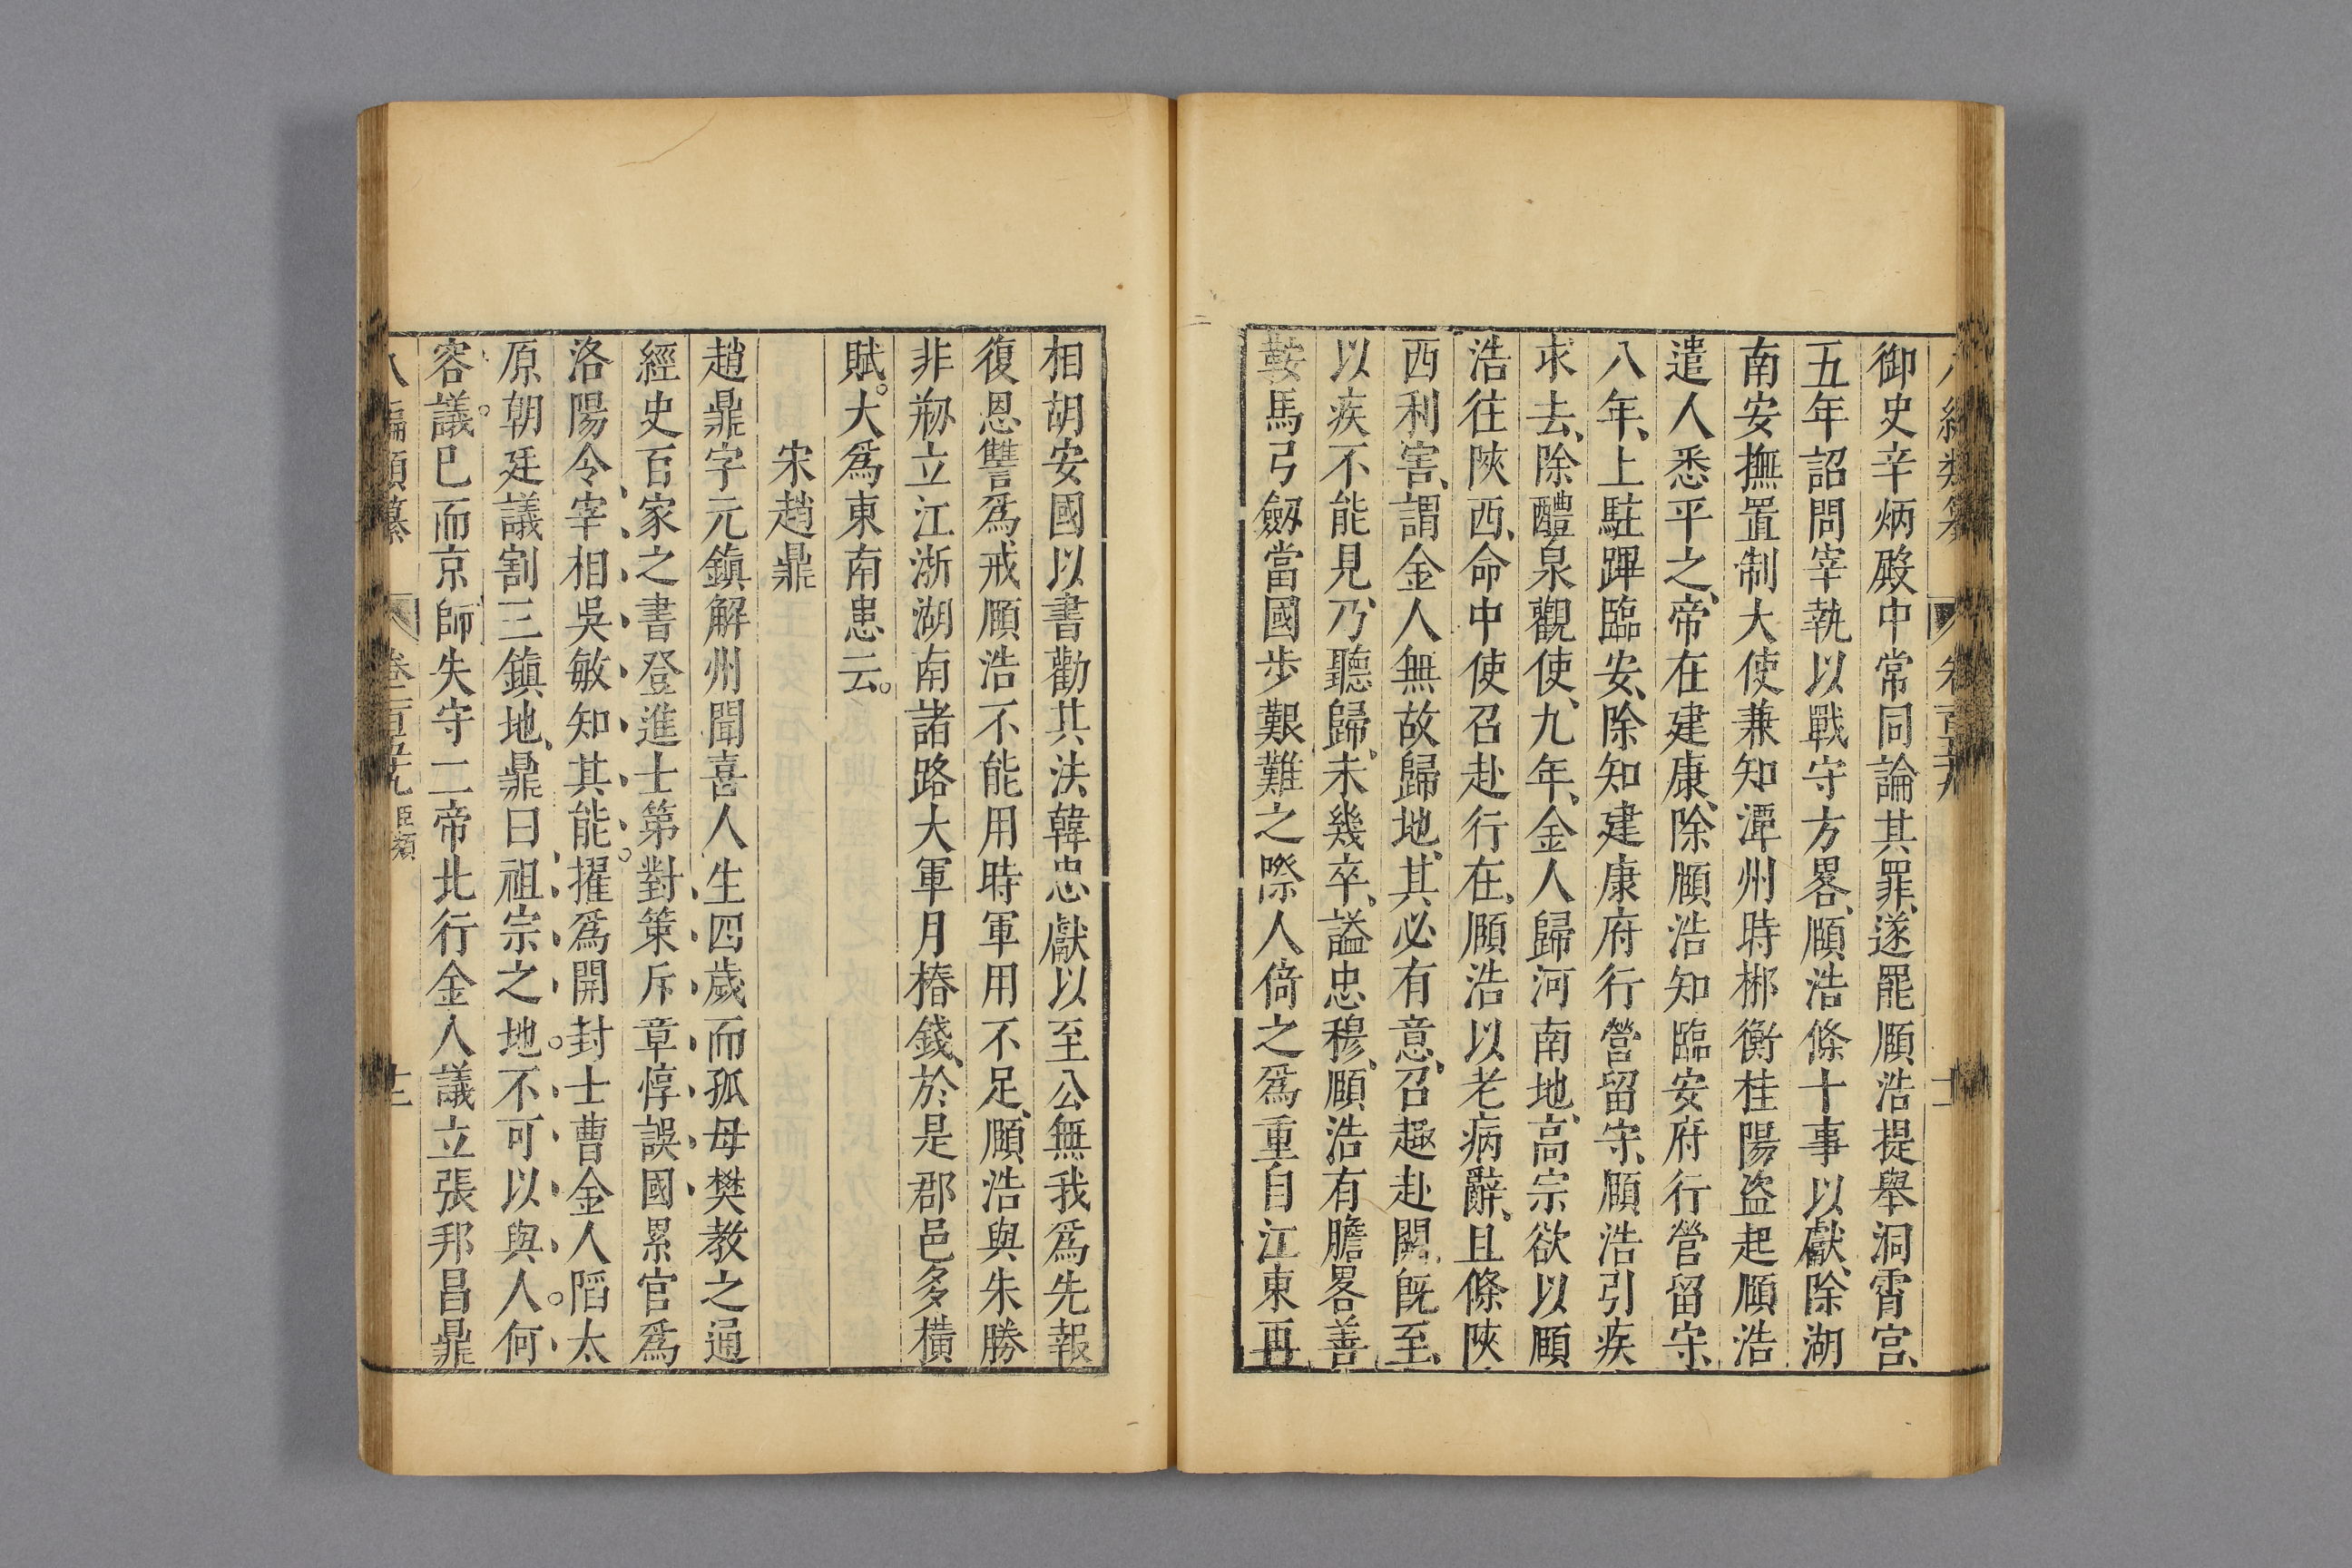 御史辛炳殿中常同論其罪、遂罷頤浩提舉洞霄宮、
五年詔問宰執以戰守方畧、頤浩條十事以獻、除湖
南安撫置制大使兼知潭州時郴衡桂陽盜起頤浩
遣人悉平之、帝在建康、除頤浩知臨安府行營留守、
八年、上駐蹕臨安、除知建康府行營留守、頤浩引疾
求去、除醴泉觀使、九年、金人歸河南地、高宗欲以頤
浩往陜西、命中使召赴行在、頤浩以老病辭、且條陜
西利害、謂金人無故歸地、其必有意、召趣赴闕、既至、
以疾不能見、乃聽歸、未幾卒、謚忠穆、頤浩有膽畧善
鞍馬弓劔當國步艱難之際人倚之爲重自江東再
相胡安國以書勸其法韓忠獻以至公無我爲先報
復恩讐爲戒頤浩不能用時軍用不足、頤浩與朱勝
非刱立江浙湖南諸路大軍月樁錢、於是郡邑多橫
賦。大爲東南患云。
宋趙鼎
趙鼎字元鎮解州聞喜人生四歲而孤母樊教之通
經史百家之書登進士第對策斥章惇誤國累官爲
洛陽令宰相吳敏知其能。擢爲開封士曹金人陷太
原朝廷議割三鎮地、鼎曰祖宗之地不可以與人何
容議。已而京師失守二帝北行金人議立張邦昌鼎
八編類纂 卷二百五九 臣類 十二